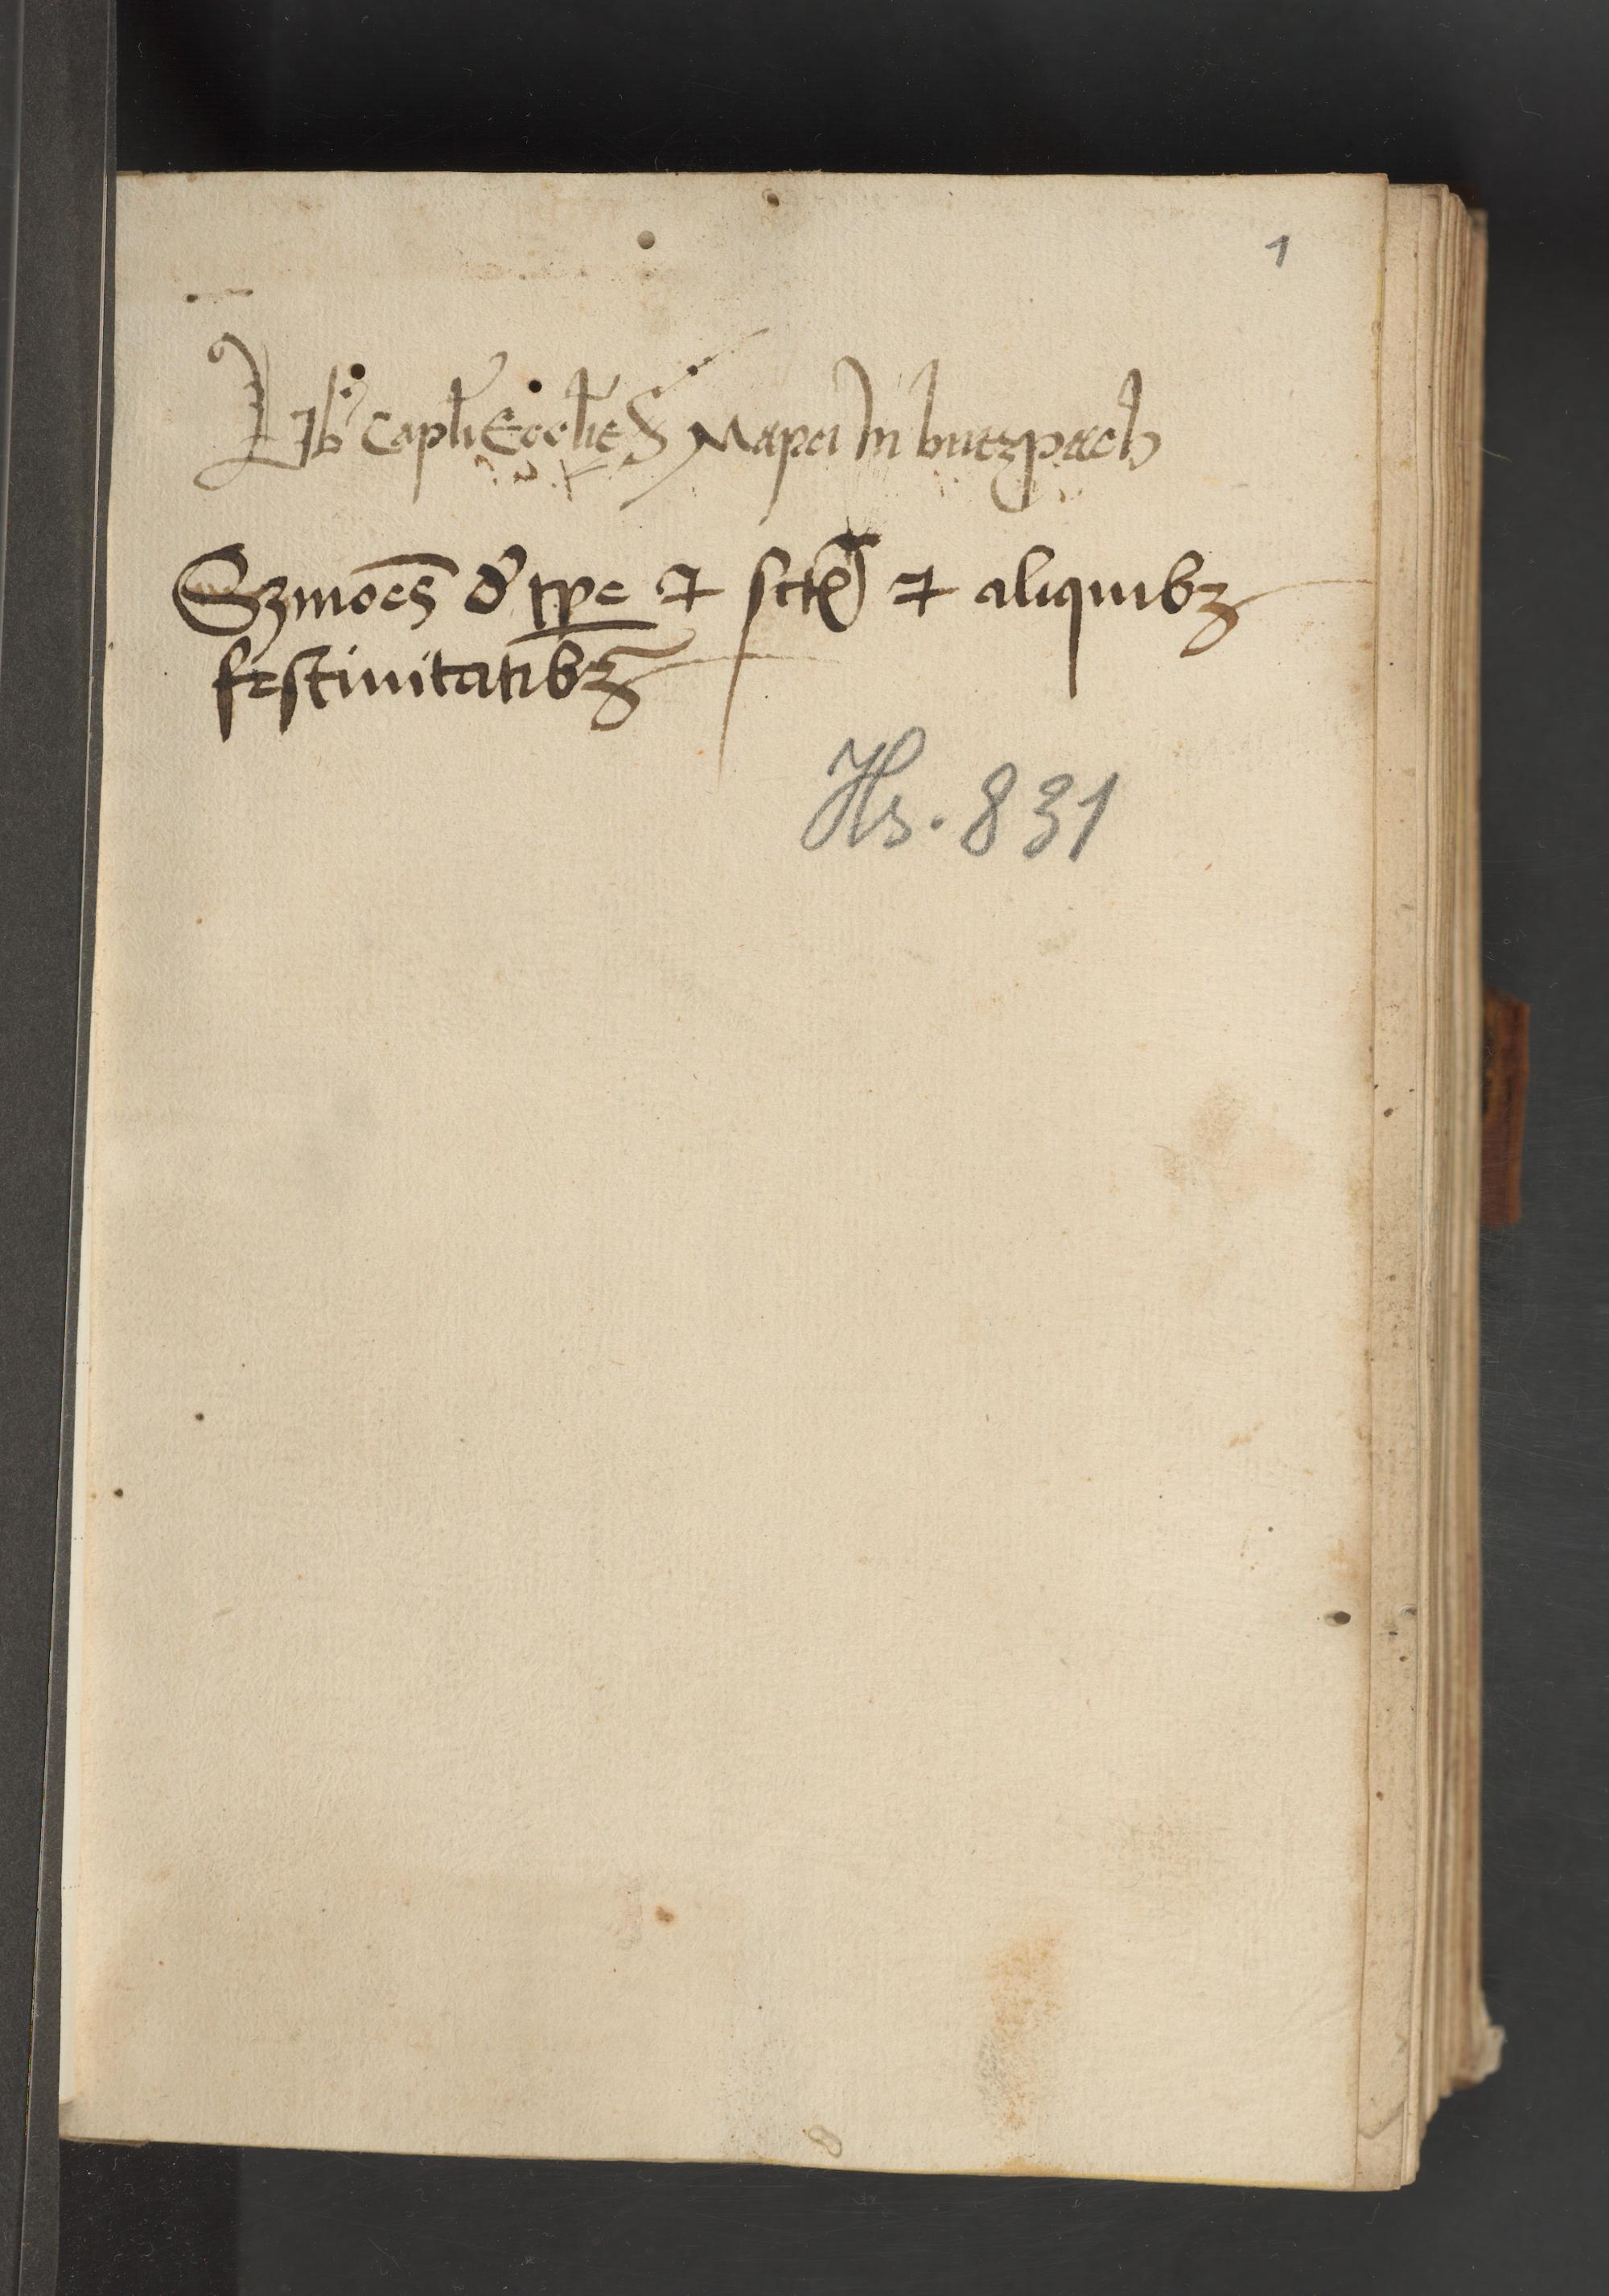 1
Lib' Capli Ecclie S Marci In butzpach
Sʒmōes d' tp̄e et sctꝝ et aliquibꝫ
festiuitatibꝫ
Hs. 831